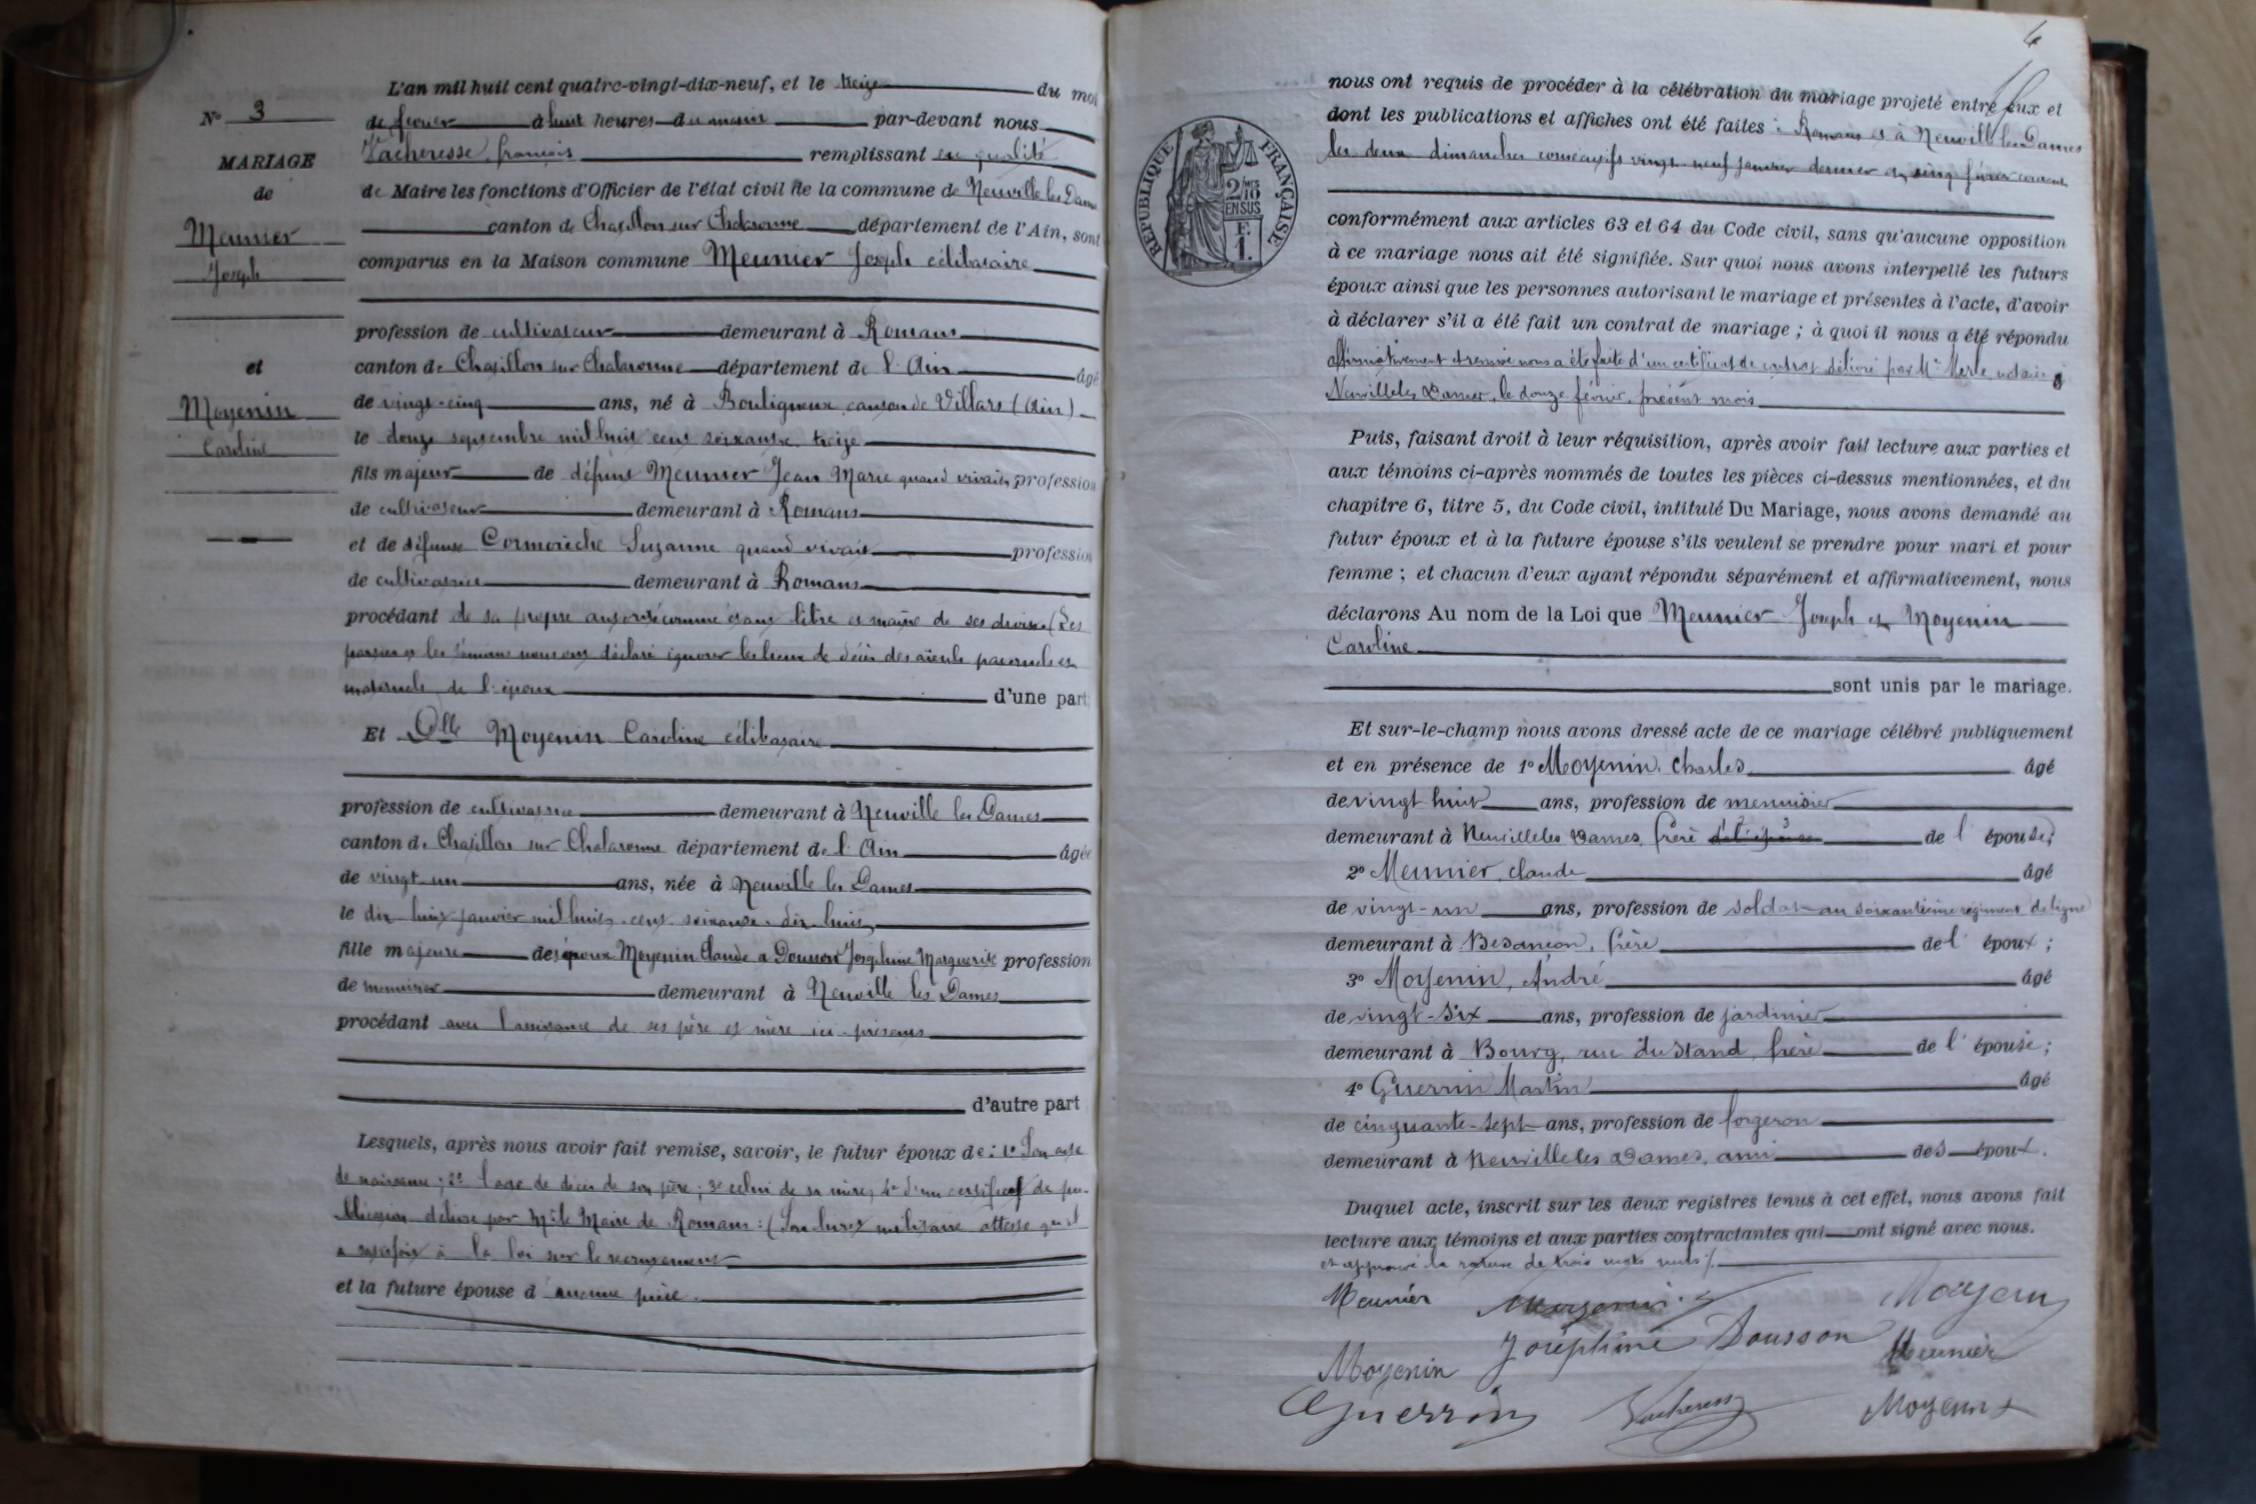 L'an mil huit cent quatre-vingt-dix-neuf, et le treize du moi
de février à huit heures du matin par-devant nous
Vacheresse françois remplissant en qualité
de Maire les fonctions d'Officier de l'état civil de la commune de Neuville les Dames
canton de Chatillon sur Chalaronne département de l'Ain, sont
comparus en la Maison commune Meunier Joseph célibataire
profession de cultivateur demeurant à Romans
canton de Chatillon sur Chalaronne département de l'Ain âgé
de vingt-cinq ans, né à Bouligneux canton de Villars (Ain)
le douze septembre mil huit cent soixante treize
fils majeur de défunt Meunier Jean Marie quand vivait, profession
de cultivateur demeurant à Romans
et de défunte Cormorèche Suzanne quand vivait profession
de cultivatrice demeurant à Romans
procédant de sa propre autorité comme étant libre et maître de ses droits (Les
parties et les témoins nous ont déclaré ignorer les lieux de décès des aïeuls paternels et
maternels de l'époux d'une part
Et Dlle Moyenin Caroline célibataire
profession de cultivatrice demeurant à Neuville les Dames
canton de Chatillon sur Chalaronne département de l'Ain âgée
de vingt un ans, née à Neuville les Dames
le dix huit janvier mil huit cent soixante dix huit
fille majeure des époux Moyenin Claude et Dousson Joséphine Marguerite profession
de menuisier demeurant à Neuville les Dames
procédant avec l'assistance de ses père et mère ici présents
d'autre part
Lesquels, après nous avoir fait remise, savoir, le futur époux de : 1° Son acte
de naissance ; 2° l'acte de décès de son père ; 3° celui de sa mère ; 4° d'un certificat de pu-
blication délivré par Mr le Maire de Romans : (Son livret militaire atteste qu'il
a satisfait à la loi sur le recrutement
et la future épouse d'aucune pièce.
N° 3
MARIAGE
de
Meunier
Joseph
et
Moyenin
Caroline
nous ont requis de procéder à la célébration du mariage projeté entre eux et
dont les publications et affiches ont été faites à Romans et à Neuville les Dames
les deux dimanches consécutifs vingt neuf janvier dernier et cinq février courant
RÉPUBLIQUE FRANÇAISE
2/10
EN SUS
F.
1.
conformément aux articles 63 et 64 du Code civil, sans qu'aucune opposition
à ce mariage nous ait été signifiée. Sur quoi nous avons interpellé les futurs
époux ainsi que les personnes autorisant le mariage et présentes à l'acte, d'avoir
à déclarer s'il a été fait un contrat de mariage ; à quoi il nous a été répondu
affirmativement et remise nous a été faite d'un certificat de contrat délivré par Me Merle notaire à
Neuville les Dames, le douze février, présent mois
Puis, faisant droit à leur réquisition, après avoir fait lecture aux parties et
aux témoins ci-après nommés de toutes les pièces ci-dessus mentionnées, et du
chapitre 6, titre 5, du Code civil, intitulé Du Mariage, nous avons demandé au
futur époux et à la future épouse s'ils veulent se prendre pour mari et pour
femme ; et chacun d'eux ayant répondu séparément et affirmativement, nous
déclarons Au nom de la Loi que Meunier Joseph et Moyenin
Caroline
sont unis par le mariage.
Et sur-le-champ nous avons dressé acte de ce mariage célébré publiquement
et en présence de 1° Moyenin, Charles âgé
de vingt huit ans, profession de menuisier
demeurant à Neuville les Dames, frère de l'épouse ;
2° Meunier, claude âgé
de vingt-un ans, profession de soldat au soixantième régiment de ligne
demeurant à Besançon, frère de l'époux ;
3° Moyenin, André âgé
de vingt-six ans, profession de jardinier
demeurant à Bourg, rue du Stand, frère de l'épouse ;
4° Guerrin Martin âgé
de cinquante-sept ans, profession de forgeron
demeurant à Neuville les Dames, ami des époux.
Duquel acte, inscrit sur les deux registres tenus à cet effet, nous avons fait
lecture aux témoins et aux parties contractantes qui ont signé avec nous.
et approuvé la rature de trois mots nuls
Meunier Moyenin Moyenin
Moyenin Joséphine Dousson Meunier
Guerrin Vacheresse Moyenin